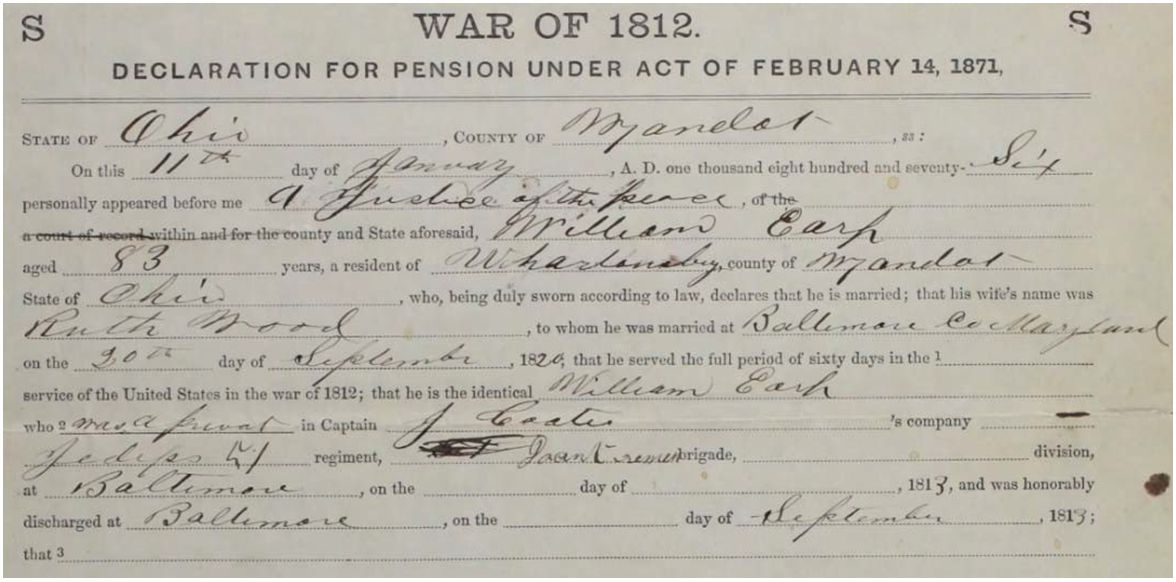 S WAR OF 1812. S
DECLARATION FOR PENSION UNDER ACT OF FEBRUARY 14, 1871,
STATE OF Ohio, COUNTY OF Wyandot, ss:
On this 11th day of January, A. D. one thousand eight hundred and seventy-Six
personally appeared before me a Justice of the peace, of the
a court of record within and for the county and State aforesaid, William Earp
aged 83 years, a resident of Whartonsby, county of Wyandot
State of Ohio, who, being duly sworn according to law, declares that he is married; that his wife's name was
Ruth Wood, to whom he was married at Baltimore Co Maryland
on the 20th day of September, 1820; that he served the full period of sixty days in the 1
service of the United States in the war of 1812; that he is the identical William Earp
who 2 was a privat in Captain J Coates's company —
regiment, brigade, division,
at Baltimore, on the day of , 1813, and was honorably
discharged at Baltimore, on the day of September, 1813;
that 3